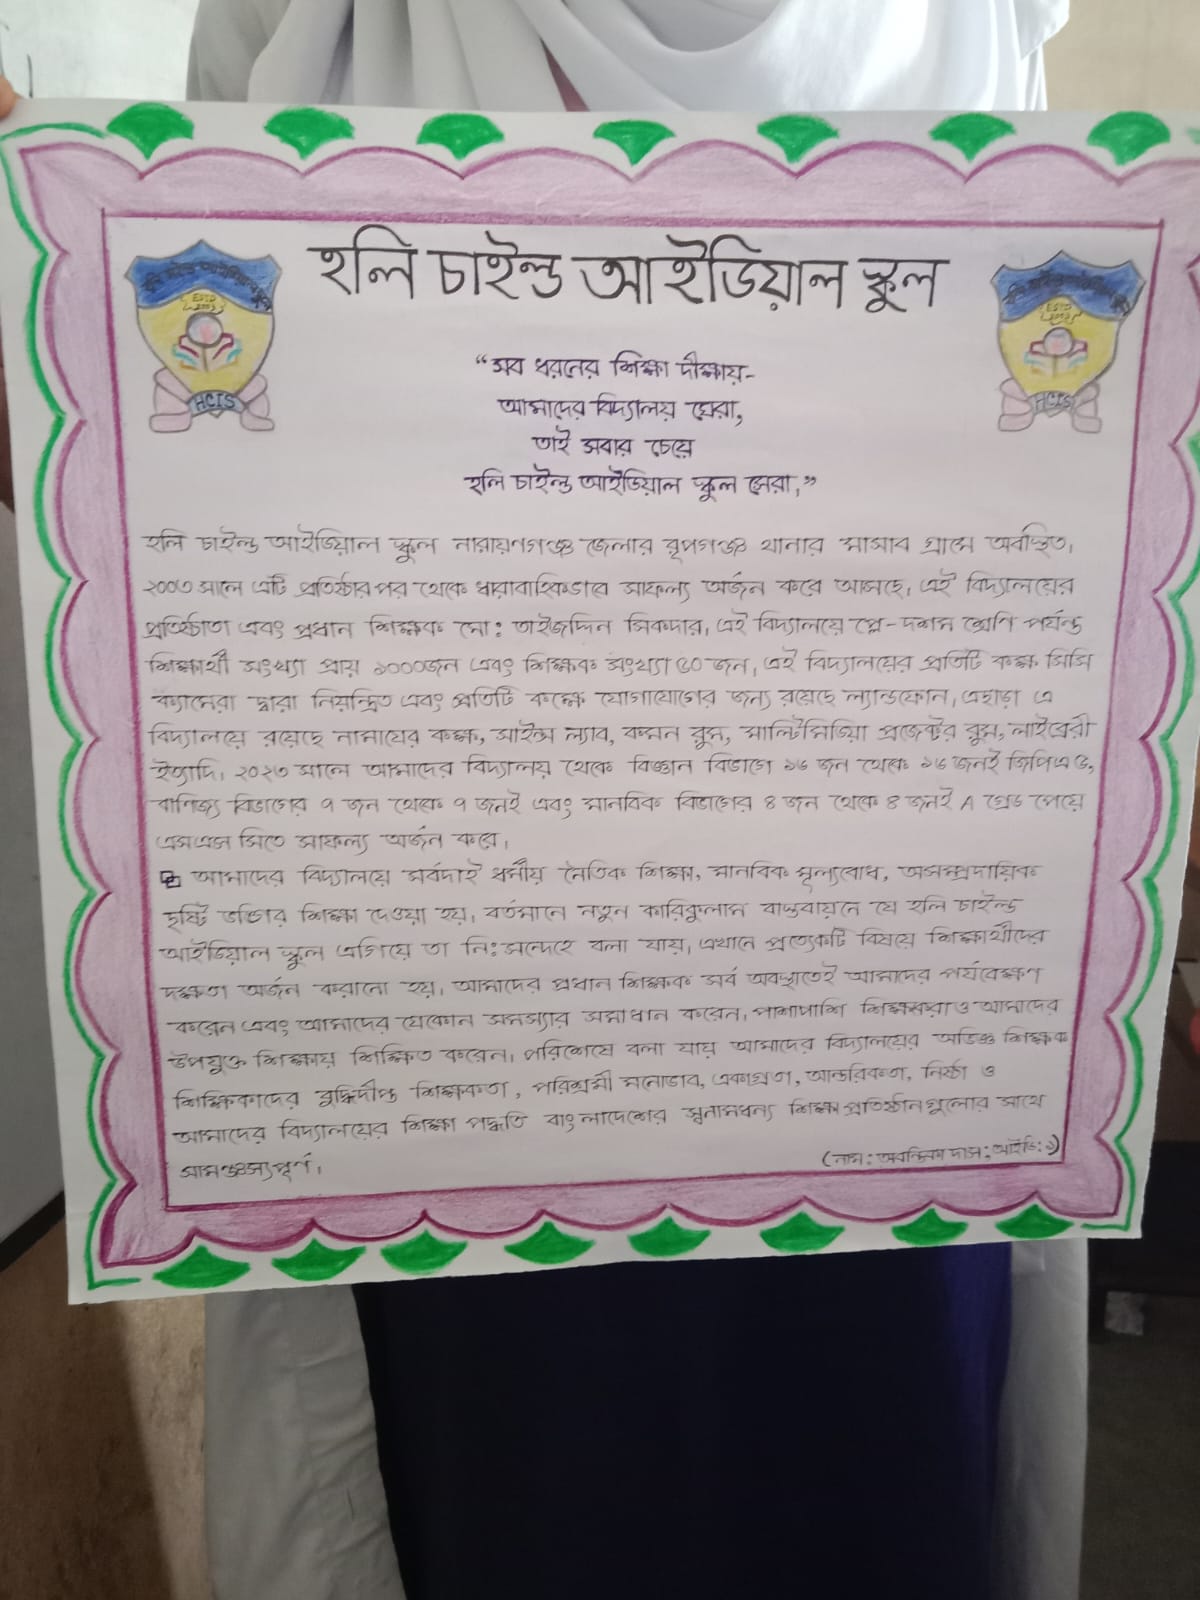 হলি চাইল্ড আইডিয়াল স্কুল
ESTD
2003
HCIS
ESTD
2003
HCIS
“সব ধরনের শিক্ষা দীক্ষায়-
আমাদের বিদ্যালয় ঘেরা,
তাই সবার চেয়ে
হলি চাইল্ড আইডিয়াল স্কুল সেরা,”
হলি চাইল্ড আইডিয়াল স্কুল নারায়ণগঞ্জ জেলার রূপগঞ্জ থানার মাসাব গ্রামে অবস্থিত,
২০০৩ সালে এটি প্রতিষ্ঠার পর থেকে ধারাবাহিকভাবে সাফল্য অর্জন করে আসছে, এই বিদ্যালয়ের
প্রতিষ্ঠাতা এবং প্রধান শিক্ষক মো: তাইজদ্দিন সিকদার, এই বিদ্যালয়ে প্লে-দশম শ্রেণি পর্যন্ত
শিক্ষার্থী সংখ্যা প্রায় ১০০০জন এবং শিক্ষক সংখ্যা ৫০ জন, এই বিদ্যালয়ের প্রতিটি কক্ষ সিসি
ক্যামেরা দ্বারা নিয়ন্ত্রিত এবং প্রতিটি কক্ষে যোগাযোগের জন্য রয়েছে ল্যান্ডফোন, এছাড়া এ
বিদ্যালয়ে রয়েছে নামাযের কক্ষ, সাইন্স ল্যাব, কমন রুম, মাল্টিমিডিয়া প্রজেক্টর রুম, লাইব্রেরী
ইত্যাদি, ২০২৩ সালে আমাদের বিদ্যালয় থেকে বিজ্ঞান বিভাগে ১৬ জন থেকে ১৬ জনই জিপিএ ৫,
বাণিজ্য বিভাগের ৭ জন থেকে ৭ জনই এবং মানবিক বিভাগের ৪ জন থেকে ৪ জনই A গ্রেড পেয়ে
এসএস সিতে সাফল্য অর্জন করে,
আমাদের বিদ্যালয়ে সর্বদাই ধর্মীয় নৈতিক শিক্ষা, মানবিক মূল্যবোধ, অসম্প্রদায়িক
দৃষ্টি ভঙ্গির শিক্ষা দেওয়া হয়, বর্তমানে নতুন কারিকুলাম বাস্তবায়নে যে হলি চাইল্ড
আইডিয়াল স্কুল এগিয়ে তা নি:সন্দেহে বলা যায়, এখানে প্রত্যেকটি বিষয়ে শিক্ষার্থীদের
দক্ষতা অর্জন করানো হয়, আমাদের প্রধান শিক্ষক সর্ব অবস্থাতেই আমাদের পর্যবেক্ষণ
করেন এবং আমাদের যেকোন সমস্যার সমাধান করেন, পাশাপাশি শিক্ষকরাও আমাদের
উপযুক্ত শিক্ষায় শিক্ষিত করেন, পরিশেষে বলা যায় আমাদের বিদ্যালয়ের অভিজ্ঞ শিক্ষক
শিক্ষিকাদের বুদ্ধিদীপ্ত শিক্ষকতা, পরিশ্রমী মনোভাব, একাগ্রতা, আন্তরিকতা, নিষ্ঠা ও
আমাদের বিদ্যালয়ের শিক্ষা পদ্ধতি বাংলাদেশের স্বনামধন্য শিক্ষা প্রতিষ্ঠানগুলোর সাথে
সামঞ্জস্যপূর্ণ,
(নাম: অবন্তিকা দাস; আইডি: ১)